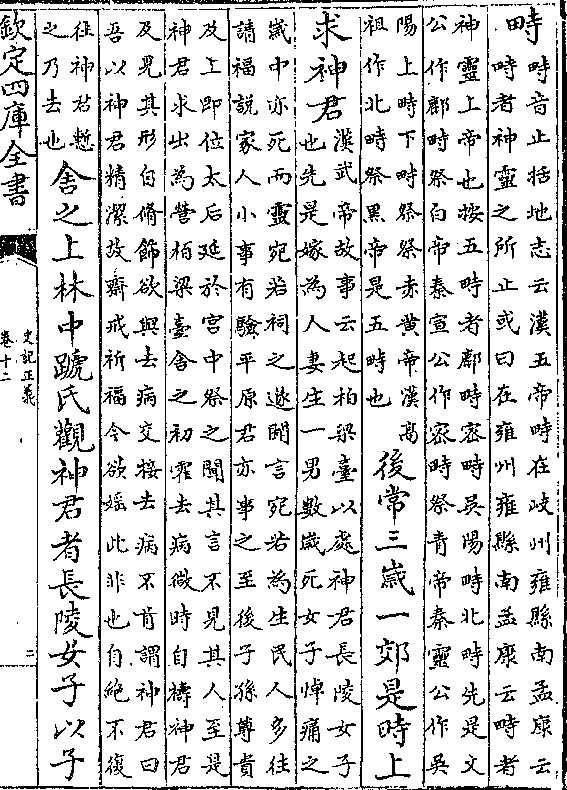 畤畤音止括地志云漢五帝畤在岐州雍縣南孟康云
畤者神靈之所止或曰在雍州雍縣南孟康云畤者
神靈上帝也按五畤者鄜畤宻畤吳陽畤北畤先是文
公作鄜畤祭白帝秦宣公作宻畤祭青帝秦靈公作吳
陽上畤下畤祭祭赤黄帝漢高
祖作北畤祭黒帝是五畤也
後常三嵗一郊是時上
求神君漢武帝故事云起柏梁臺以處神君長陵女子
也先是嫁為人妻生一男數嵗死女子悼痛之
嵗中亦死而靈宛若祠之遂聞言宛若為生民人多往
請福説家人小事有驗平原君亦事之至後子孫尊貴
及上即位太后延於宫中祭之聞其言不見其人至是
神君求出為營柏梁臺舍之初霍去病微時自禱神君
及見其形自脩飾欲與去病交接去病不肯謂神君曰
吾以神君精潔故齋戒祈福今欲婬此非也自絶不復
往神君慙
之乃去也
舍之上林中蹏氏觀神君者長陵女子以子
欽定四庫全書
史記正義
卷十二
二